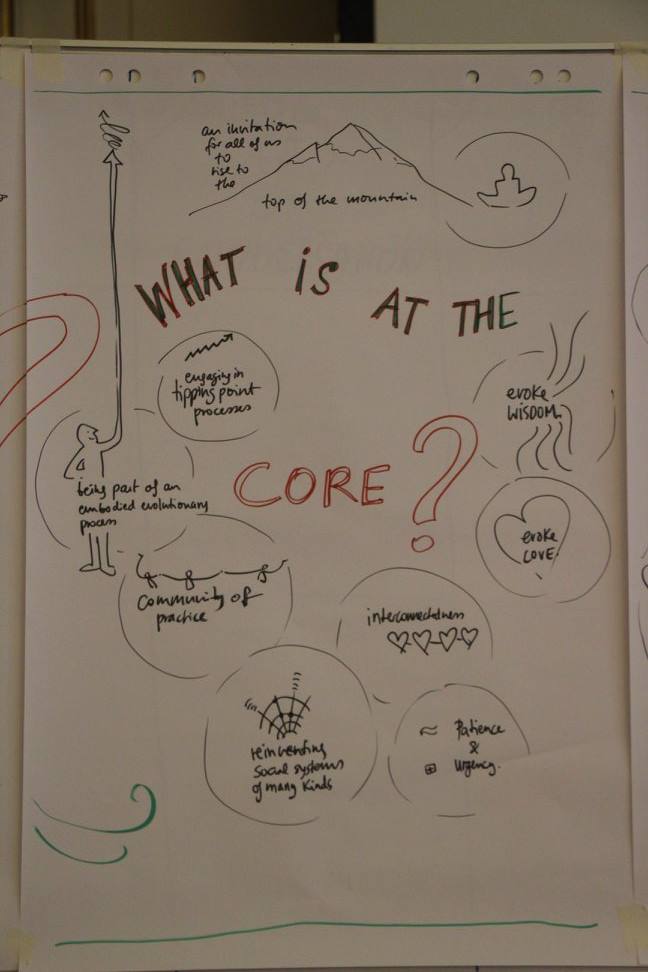 an invitation
for all of us
to
rise to
the
top of the mountain
WHAT iS AT THE
CORE?
engaging in
tipping point
processes
evoke
WISDOM.
being part of an
embodied evolutionary
process
evoke
LOVE.
Community of
practice
interconnectedness
reinventing
social systems
of many kinds
Patience
&
Urgency.